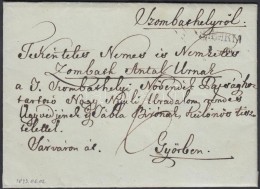 Szombathelyről.
Tekéntetes Nemes és Nemzetes
Zombath Antal Urnak
a T. Szombathelyi Nevendék Papságho
tartozó Nagy Uradalom rendes
Ügyvédjének 's Tábla Birónak különös tisz
telettel.
Sárváron át.
Győrben.